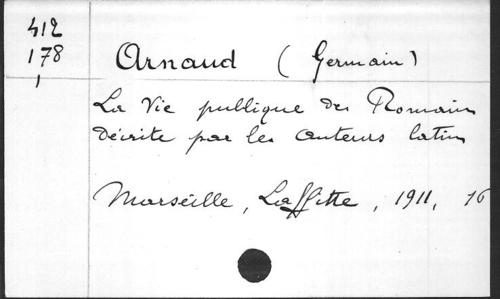 412
178
1
Arnaud (Germain)
La Vie publique des Romains
décrite par les auteurs latins
Marseille, Laffitte, 1911, 16